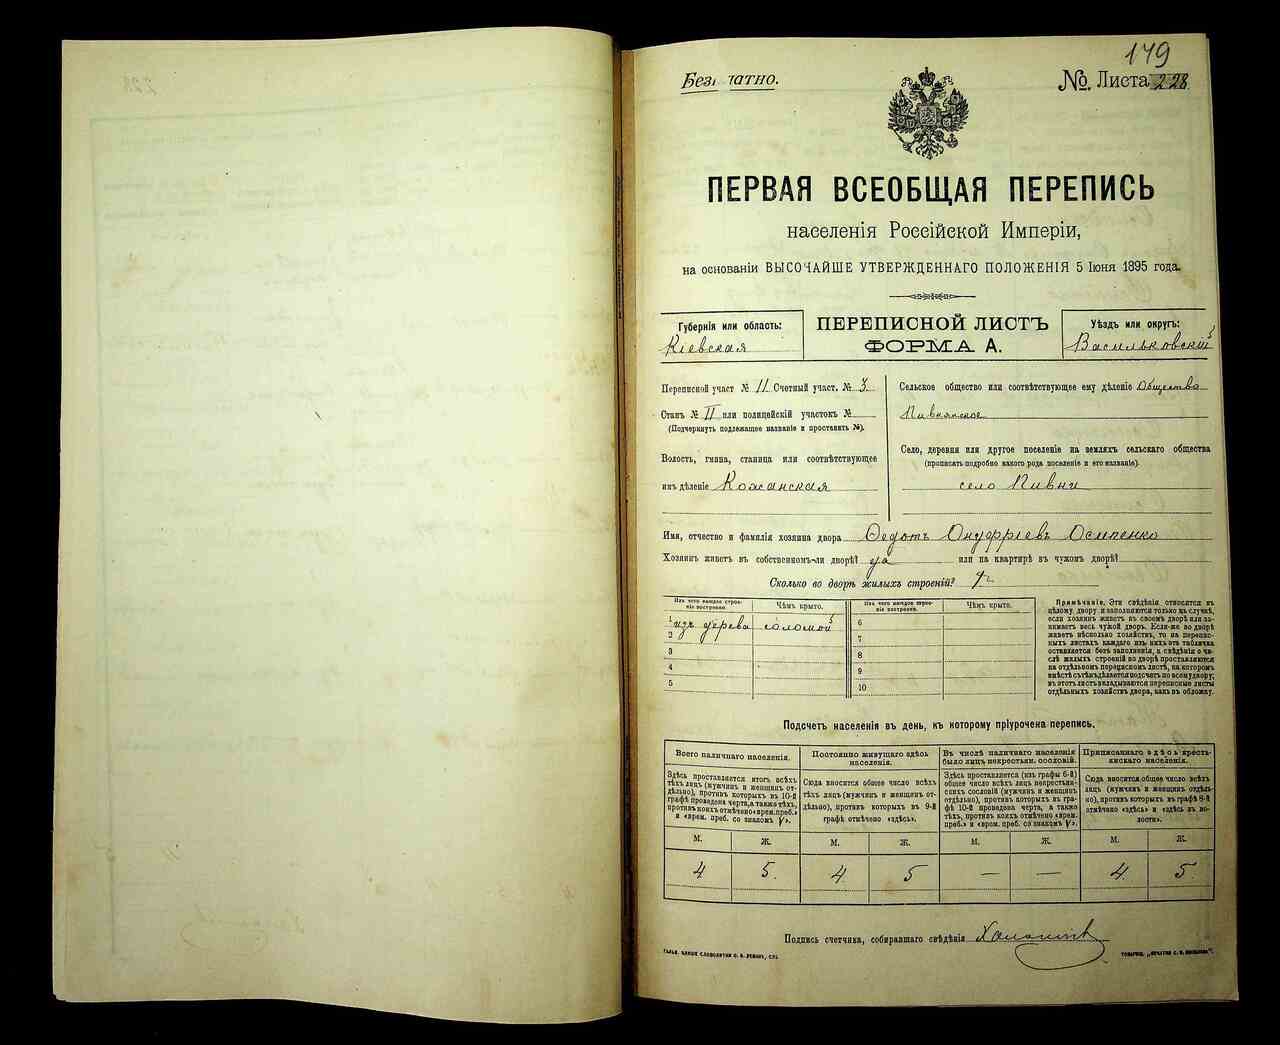 179
Безплатно.
№ Листа 228
ПЕРВАЯ ВСЕОБЩАЯ ПЕРЕПИСЬ
населенія Россійской Имперіи,
на основаніи ВЫСОЧАЙШЕ УТВЕРЖДЕННАГО ПОЛОЖЕНІЯ 5 Іюня 1895 года.
Губернія или область:
Кіевская
ПЕРЕПИСНОЙ ЛИСТЪ
ФОРМА А.
Уѣздъ или округъ:
Васильковскій
Переписной участ № II Счетный участ. № 3
Станъ № II или полицейскій участокъ №
(Подчеркнуть подлежащее названіе и проставить №).
Волость, гмина, станица или соотвѣтствующее
имъ дѣленіе Кожанская
Сельское общество или соотвѣтствующее ему дѣленіе Общества
Пивнянское
Село, деревня или другое поселеніе на земляхъ сельскаго общества
(прописать подробно какого рода поселеніе и его названіе).
село Пивни
Имя, отчество и фамилія хозяина двора Ѳедотъ Онуфріевъ Осипенко
Хозяинъ живетъ въ собственномъ-ли дворѣ? да или на квартирѣ въ чужомъ дворѣ?
Сколько во дворѣ жилыхъ строеній?
Изъ чего каждое строе-
ніе построено.
Чѣмъ крыто.
1 изъ дерева соломой
2
3
4
5
Изъ чего каждое строе-
ніе построено.
Чѣмъ крыто.
6
7
8
9
10
Примѣчаніе. Эти свѣдѣнія относятся къ
цѣлому двору и заполняются только въ случаѣ,
если хозяинъ живетъ въ своемъ дворѣ или за-
нимаетъ весь чужой дворъ. Если-же во дворѣ
живетъ нѣсколько хозяйствъ, то на перепис-
ныхъ листахъ каждаго изъ нихъ эта табличка
оставляется безъ заполненія, а свѣдѣнія о чи-
слѣ жилыхъ строеній во дворѣ проставляются
на отдѣльномъ переписномъ листѣ, на которомъ
вмѣстѣ съ тѣмъ дѣлается подсчетъ по всему двору;
въ этотъ листъ вкладываются переписные листы
отдѣльныхъ хозяйствъ двора, какъ въ обложку.
Подсчетъ населенія въ день, къ которому пріурочена перепись.
Всего наличнаго населенія.
Здѣсь проставляется итогъ всѣхъ
тѣхъ лицъ (мужчинъ и женщинъ от-
дѣльно), противъ которыхъ въ 10-й
графѣ проведена черта, а также тѣхъ,
противъ коихъ отмѣчено «врем. преб.»
и «врем. преб. со знакомъ V».
Постоянно живущаго здѣсь
населенія.
Сюда вносится общее число всѣхъ
тѣхъ лицъ (мужчинъ и женщинъ от-
дѣльно), противъ которыхъ въ 9-й
графѣ отмѣчено «здѣсь».
Въ числѣ наличнаго населенія
было лицъ некрестьян. сословій.
Здѣсь проставляется (изъ графы 6-й)
общее число всѣхъ некрестьян-
скихъ сословій (мужчинъ и женщинъ
отдѣльно), противъ которыхъ въ гра-
фѣ 10-й проведена черта, а также
тѣхъ, противъ коихъ отмѣчено «врем.
преб.» и «врем. преб. со знакомъ V».
Приписаннаго здѣсь кресть-
янскаго населенія.
Сюда вносится общее число всѣхъ
лицъ (мужчинъ и женщинъ отдѣль-
но), противъ которыхъ въ графѣ 8-й
отмѣчено «здѣсь» и «здѣсь въ во-
лости».
М. Ж. М. Ж. М. Ж. М. Ж.
4 5. 4 5 — — 4. 5
Подпись счетчика, собиравшаго свѣдѣнія